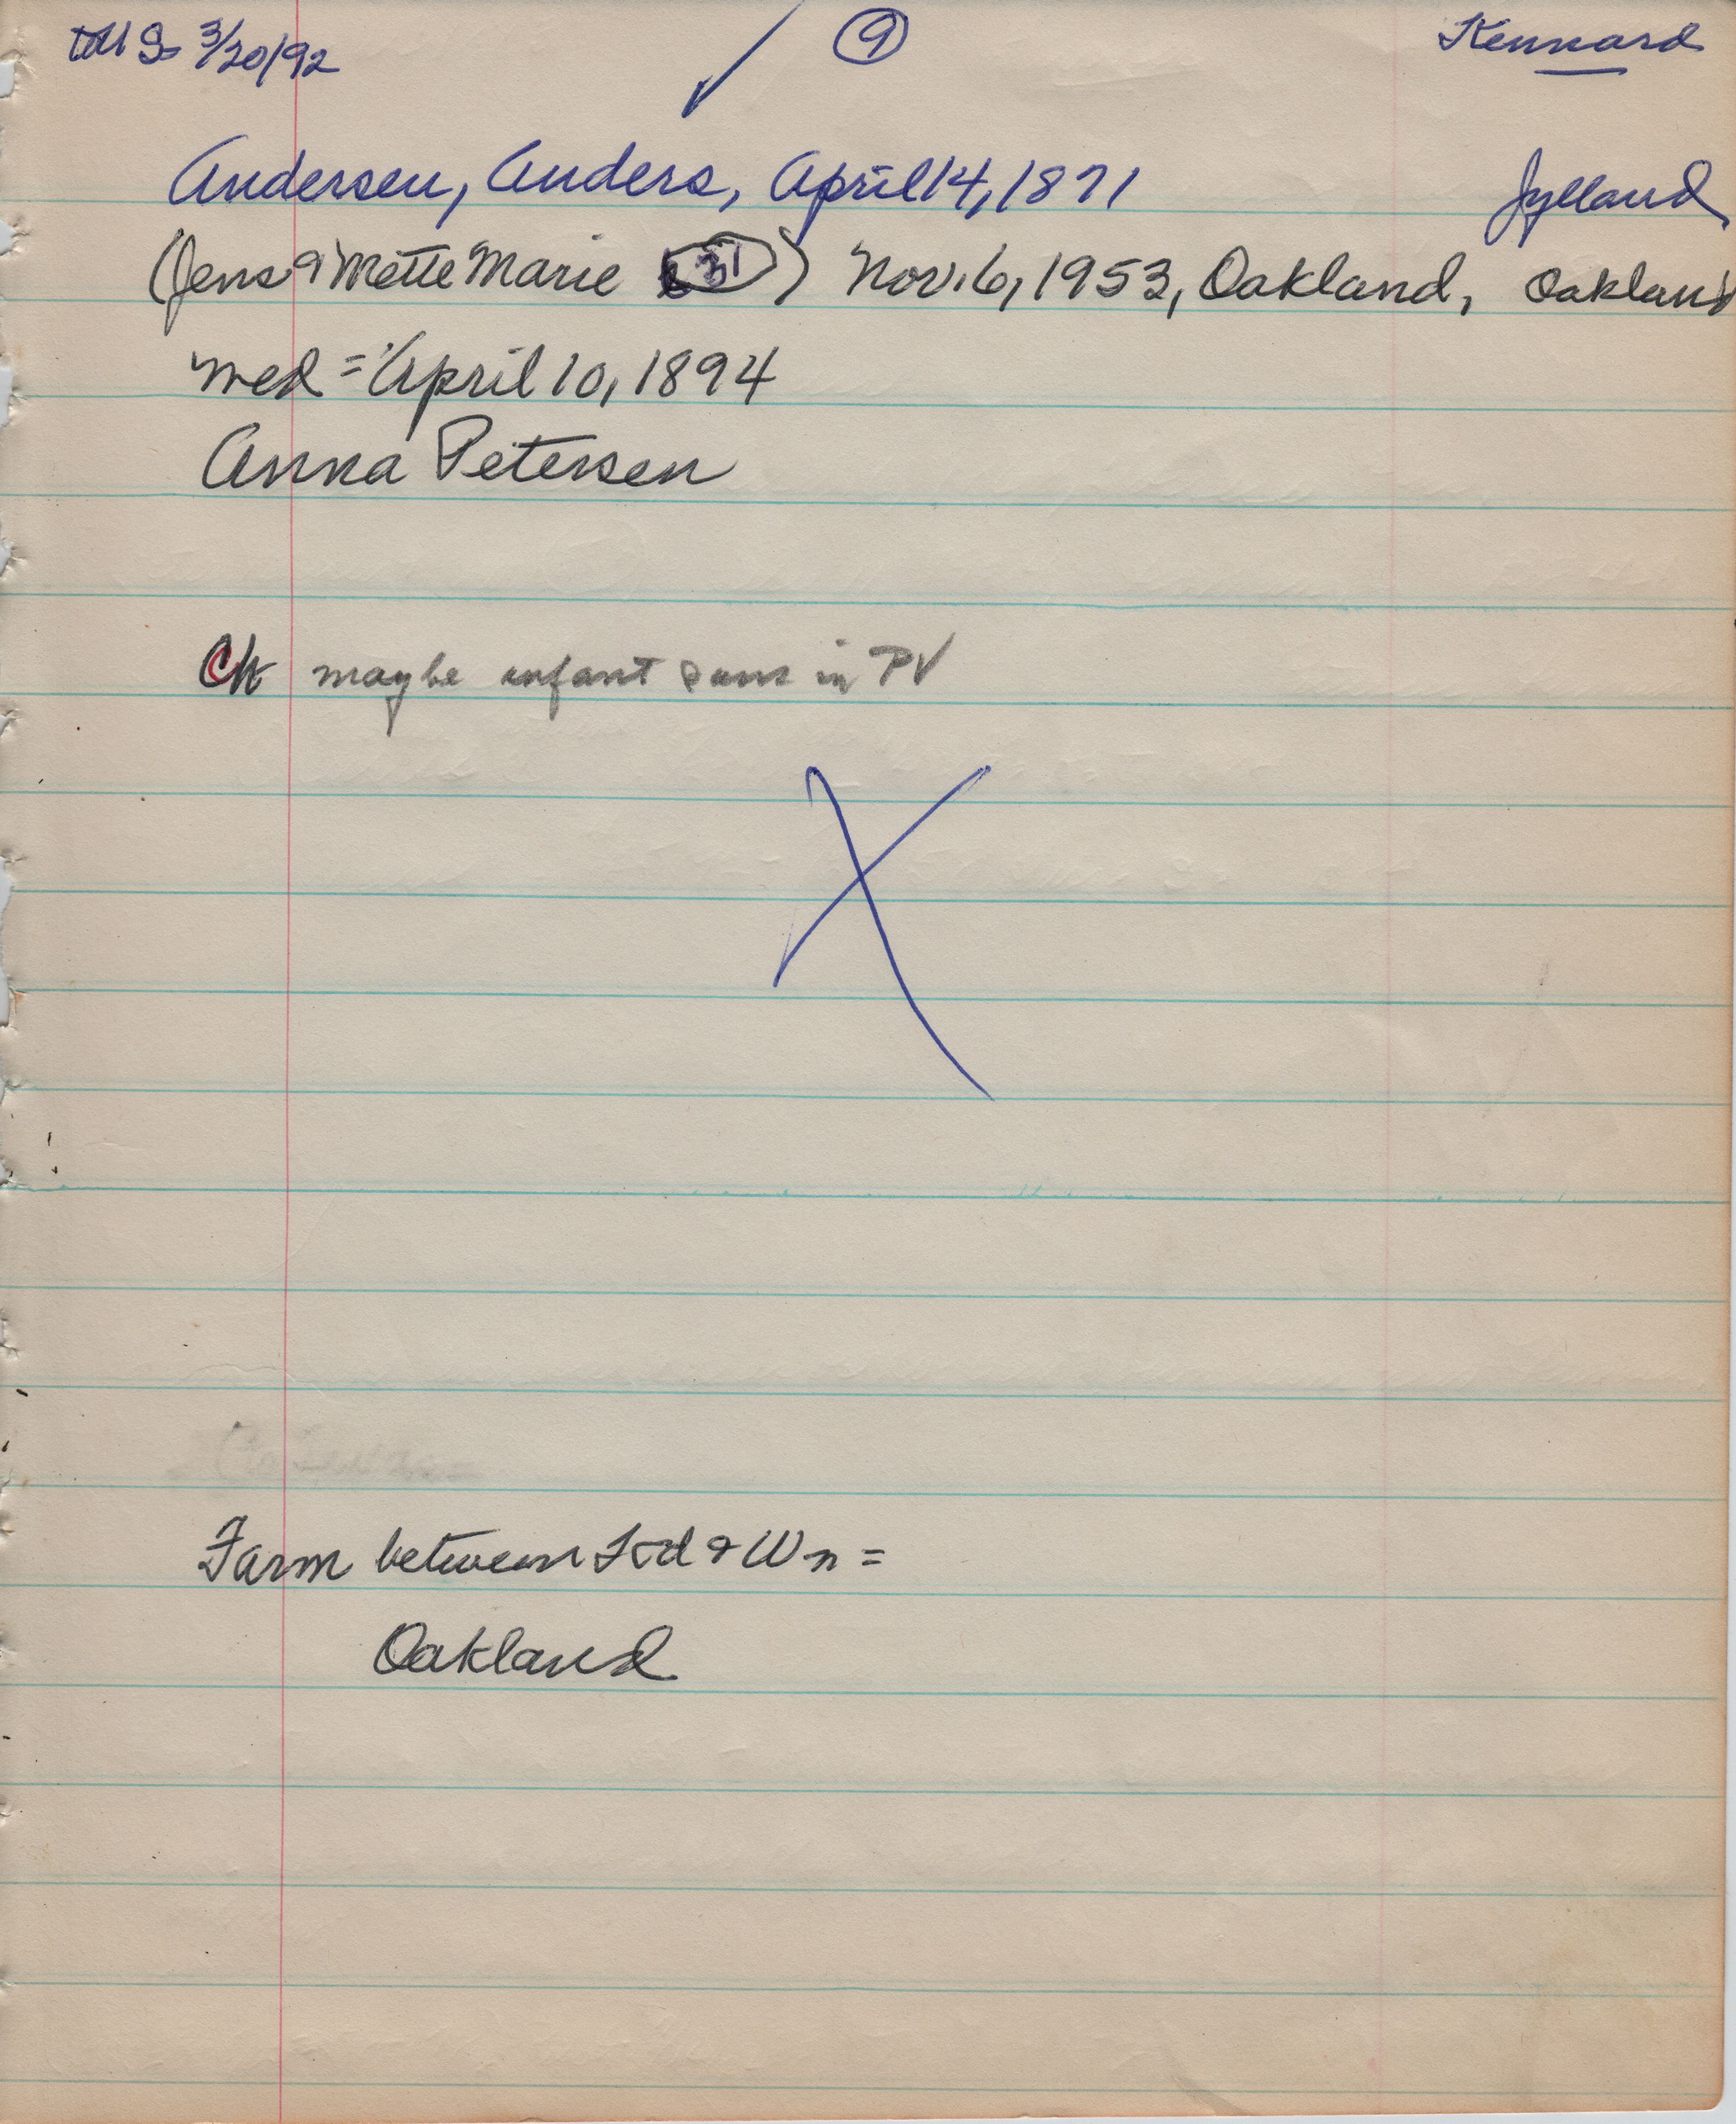 3/20/92 9 Kennard
Andersen, Anders, April 14, 1871 Jylland
(Jens & Mette Marie 31) Nov. 6, 1953, Oakland, Oakland
med = April 10, 1894
Anna Petersen
Ck maybe infant sons in PV
X
Farm between & Wn =
Oakland